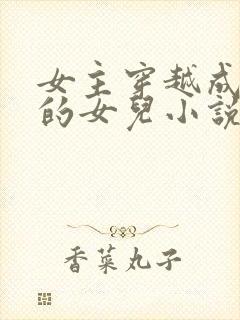 女主穿越成
的女兒小說
香菜丸子